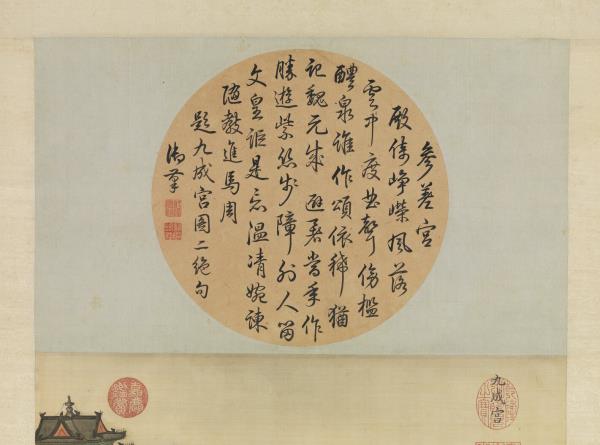 參差宮
殿倚崢嶸風落
雲中度曲聲傍檻
醴泉誰作頌依稀猶
記魏元成避暑當年作
勝遊紫絲步障人留
文皇詎是忘温凊婉諫
隨教進馬周
題九成宮圖二絕句
御筆
九成宮